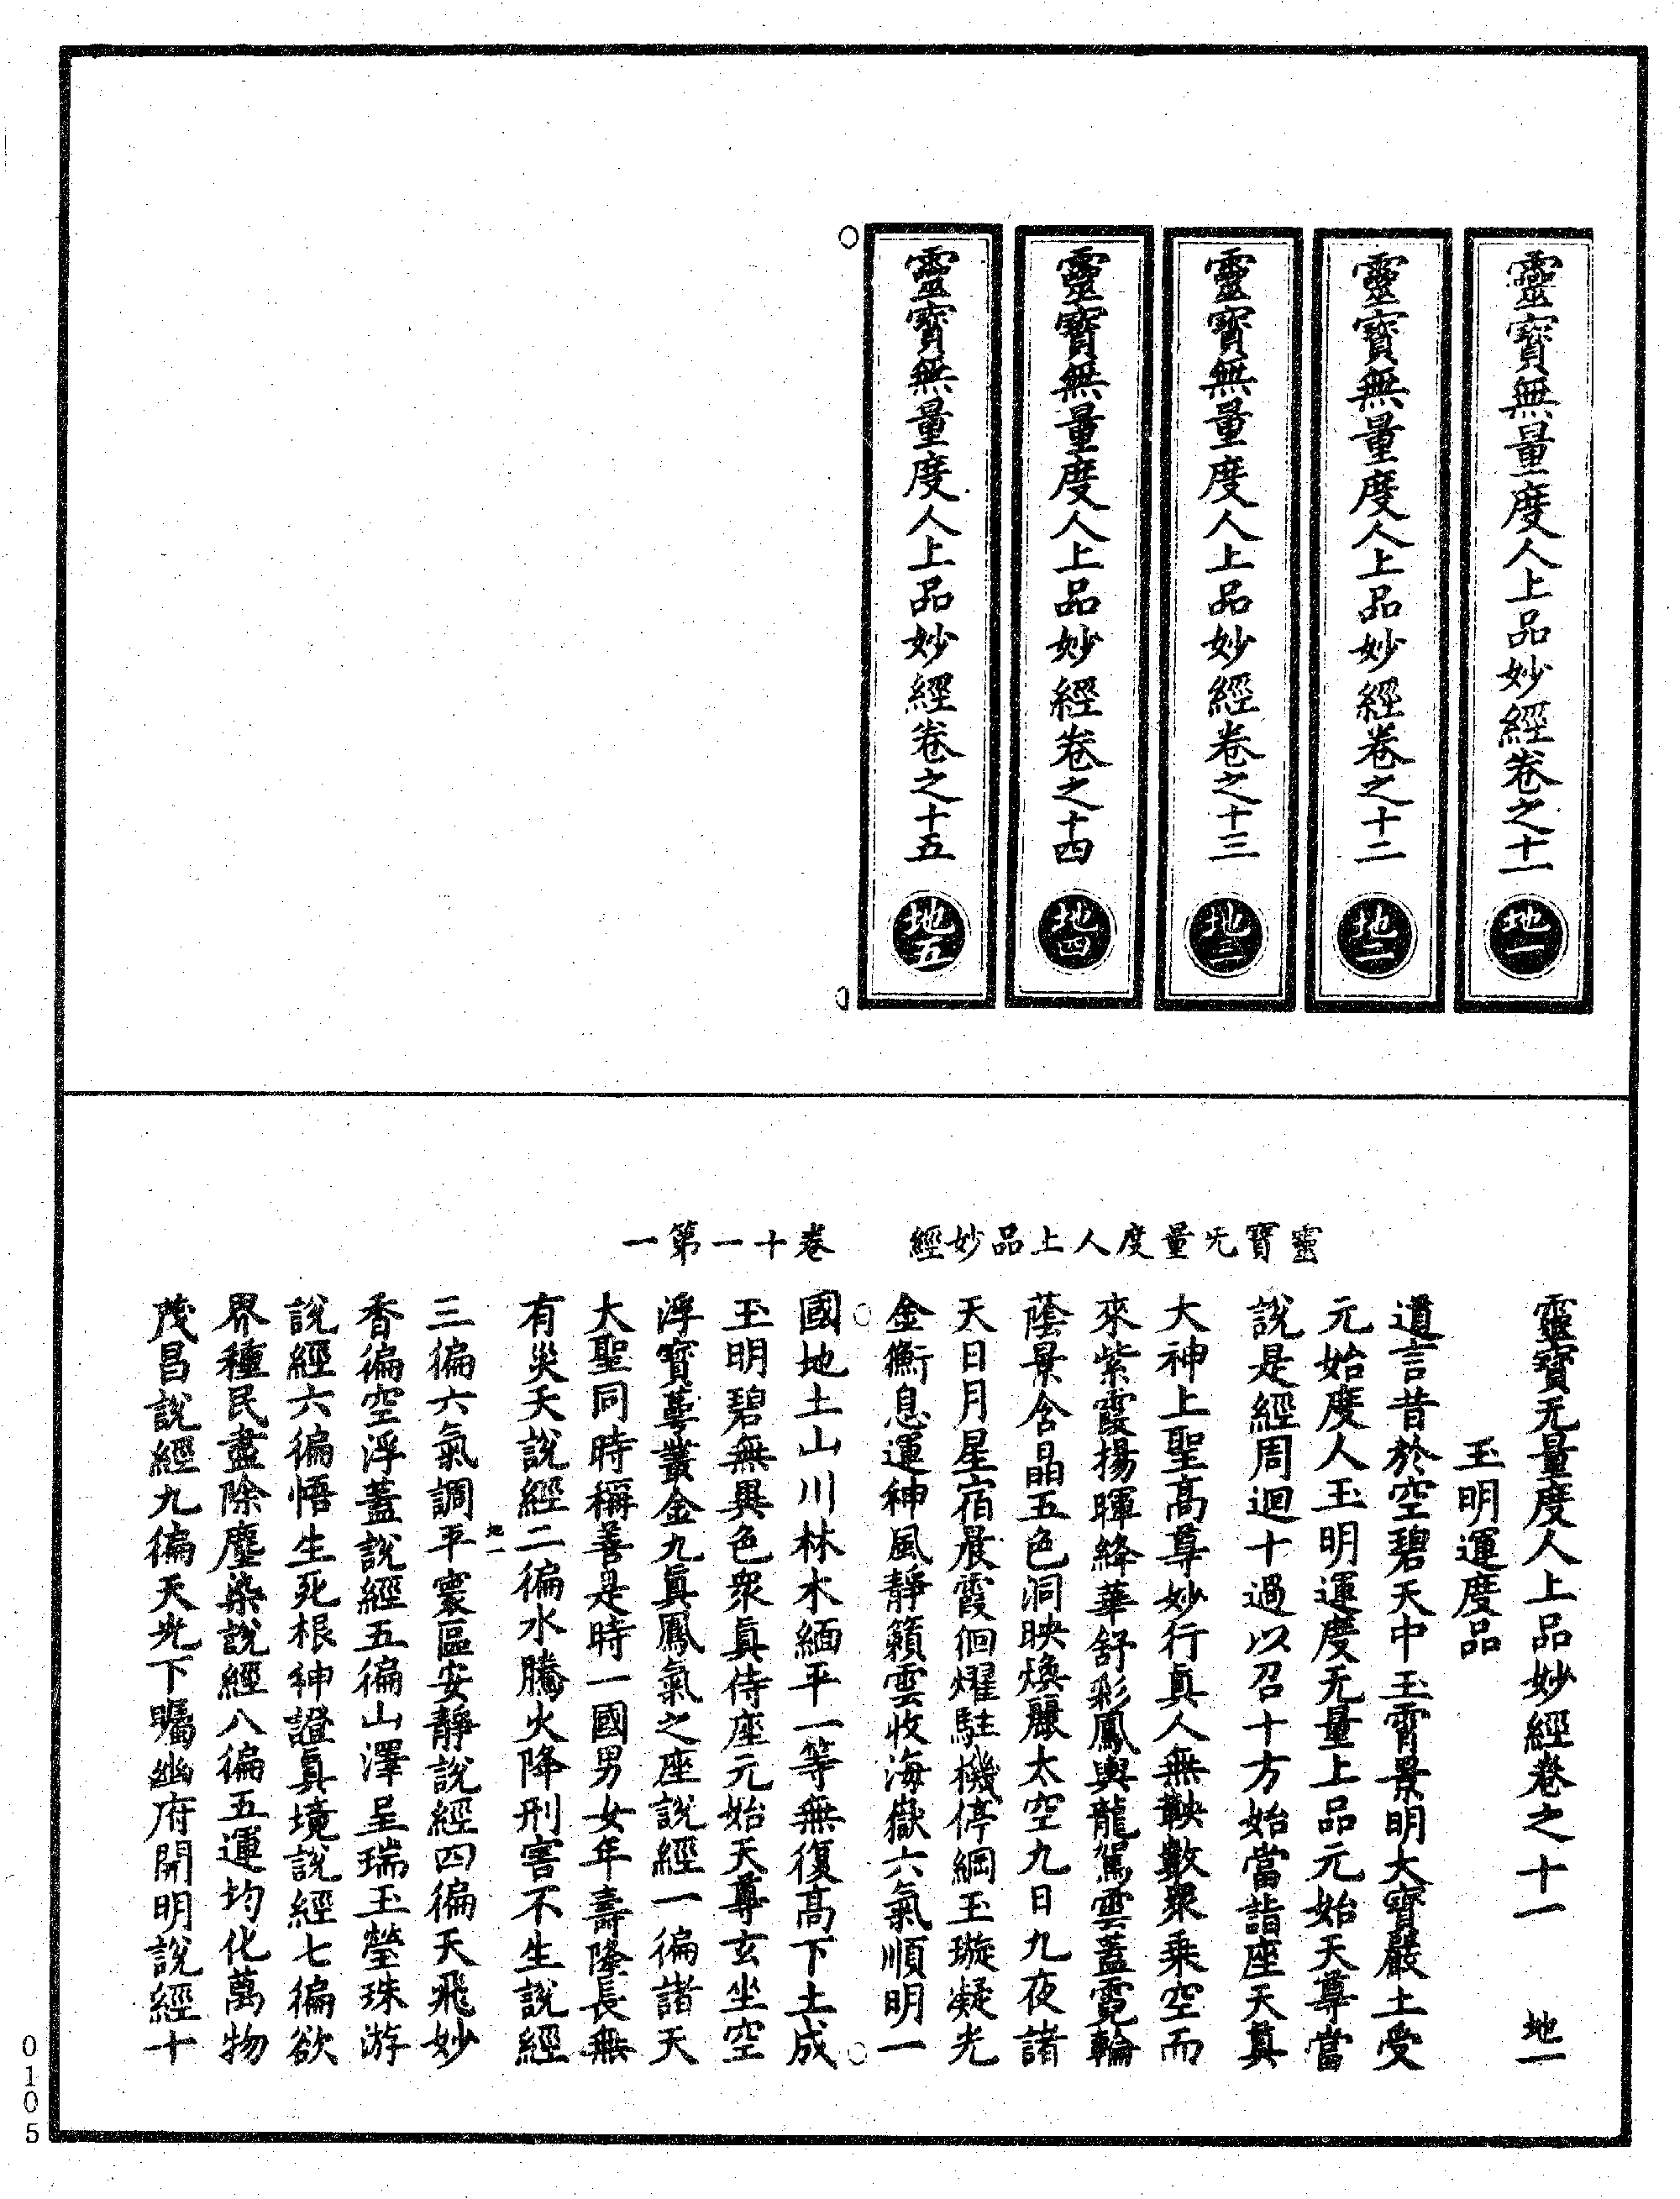 靈寶無量度人上品妙經卷之十一 地一
靈寶無量度人上品妙經卷之十二 地二
靈寶無量度人上品妙經卷之十三 地三
靈寶無量度人上品妙經卷之十四 地四
靈寶無量度人上品妙經卷之十五 地五
靈寶无量度人上品妙經 卷十一第一
靈寶无量度人上品妙經卷之十一 地一
玉明運度品
道言昔於空碧天中玉霄景明大寶嚴土受
元始度人玉明運度无量上品元始天尊當
說是經周迴十過以召十方始當詣座天真
大神上聖高尊妙行真人無鞅數衆乘空而
來紫霞揚暉絳華舒彩鳳輿龍駕雲蓋霓輪
蔭景含晶五色洞映煥麗太空九日九夜諸
天日月星宿晨霞佪燿駐機停綱玉璇凝光
金衡息運神風靜籟雲收海嶽六氣順明一
國地土山川林木緬平一等無復高下土成
玉明碧無異色衆真侍座元始天尊玄坐空
浮寶蕚叢金九真鳳氣之座說經一徧諸天
大聖同時稱善是時一國男女年壽隆長無
有災夭說經二徧水騰火降刑害不生說經
地一
三徧六氣調平寰區安靜說經四徧天飛妙
香徧空浮蓋說經五徧山澤呈瑞玉瑩珠游
說經六徧悟生死根神證真境說經七徧欲
界種民盡除塵染說經八徧五運均化萬物
茂昌說經九徧天光下矚幽府開明說經十
0105